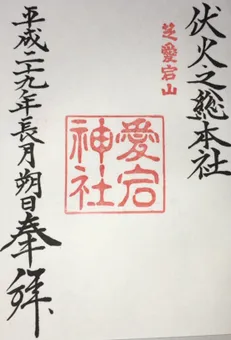 伏火之総本社
芝愛宕山
愛宕
神社
平成二十九年長月朔日
奉拝